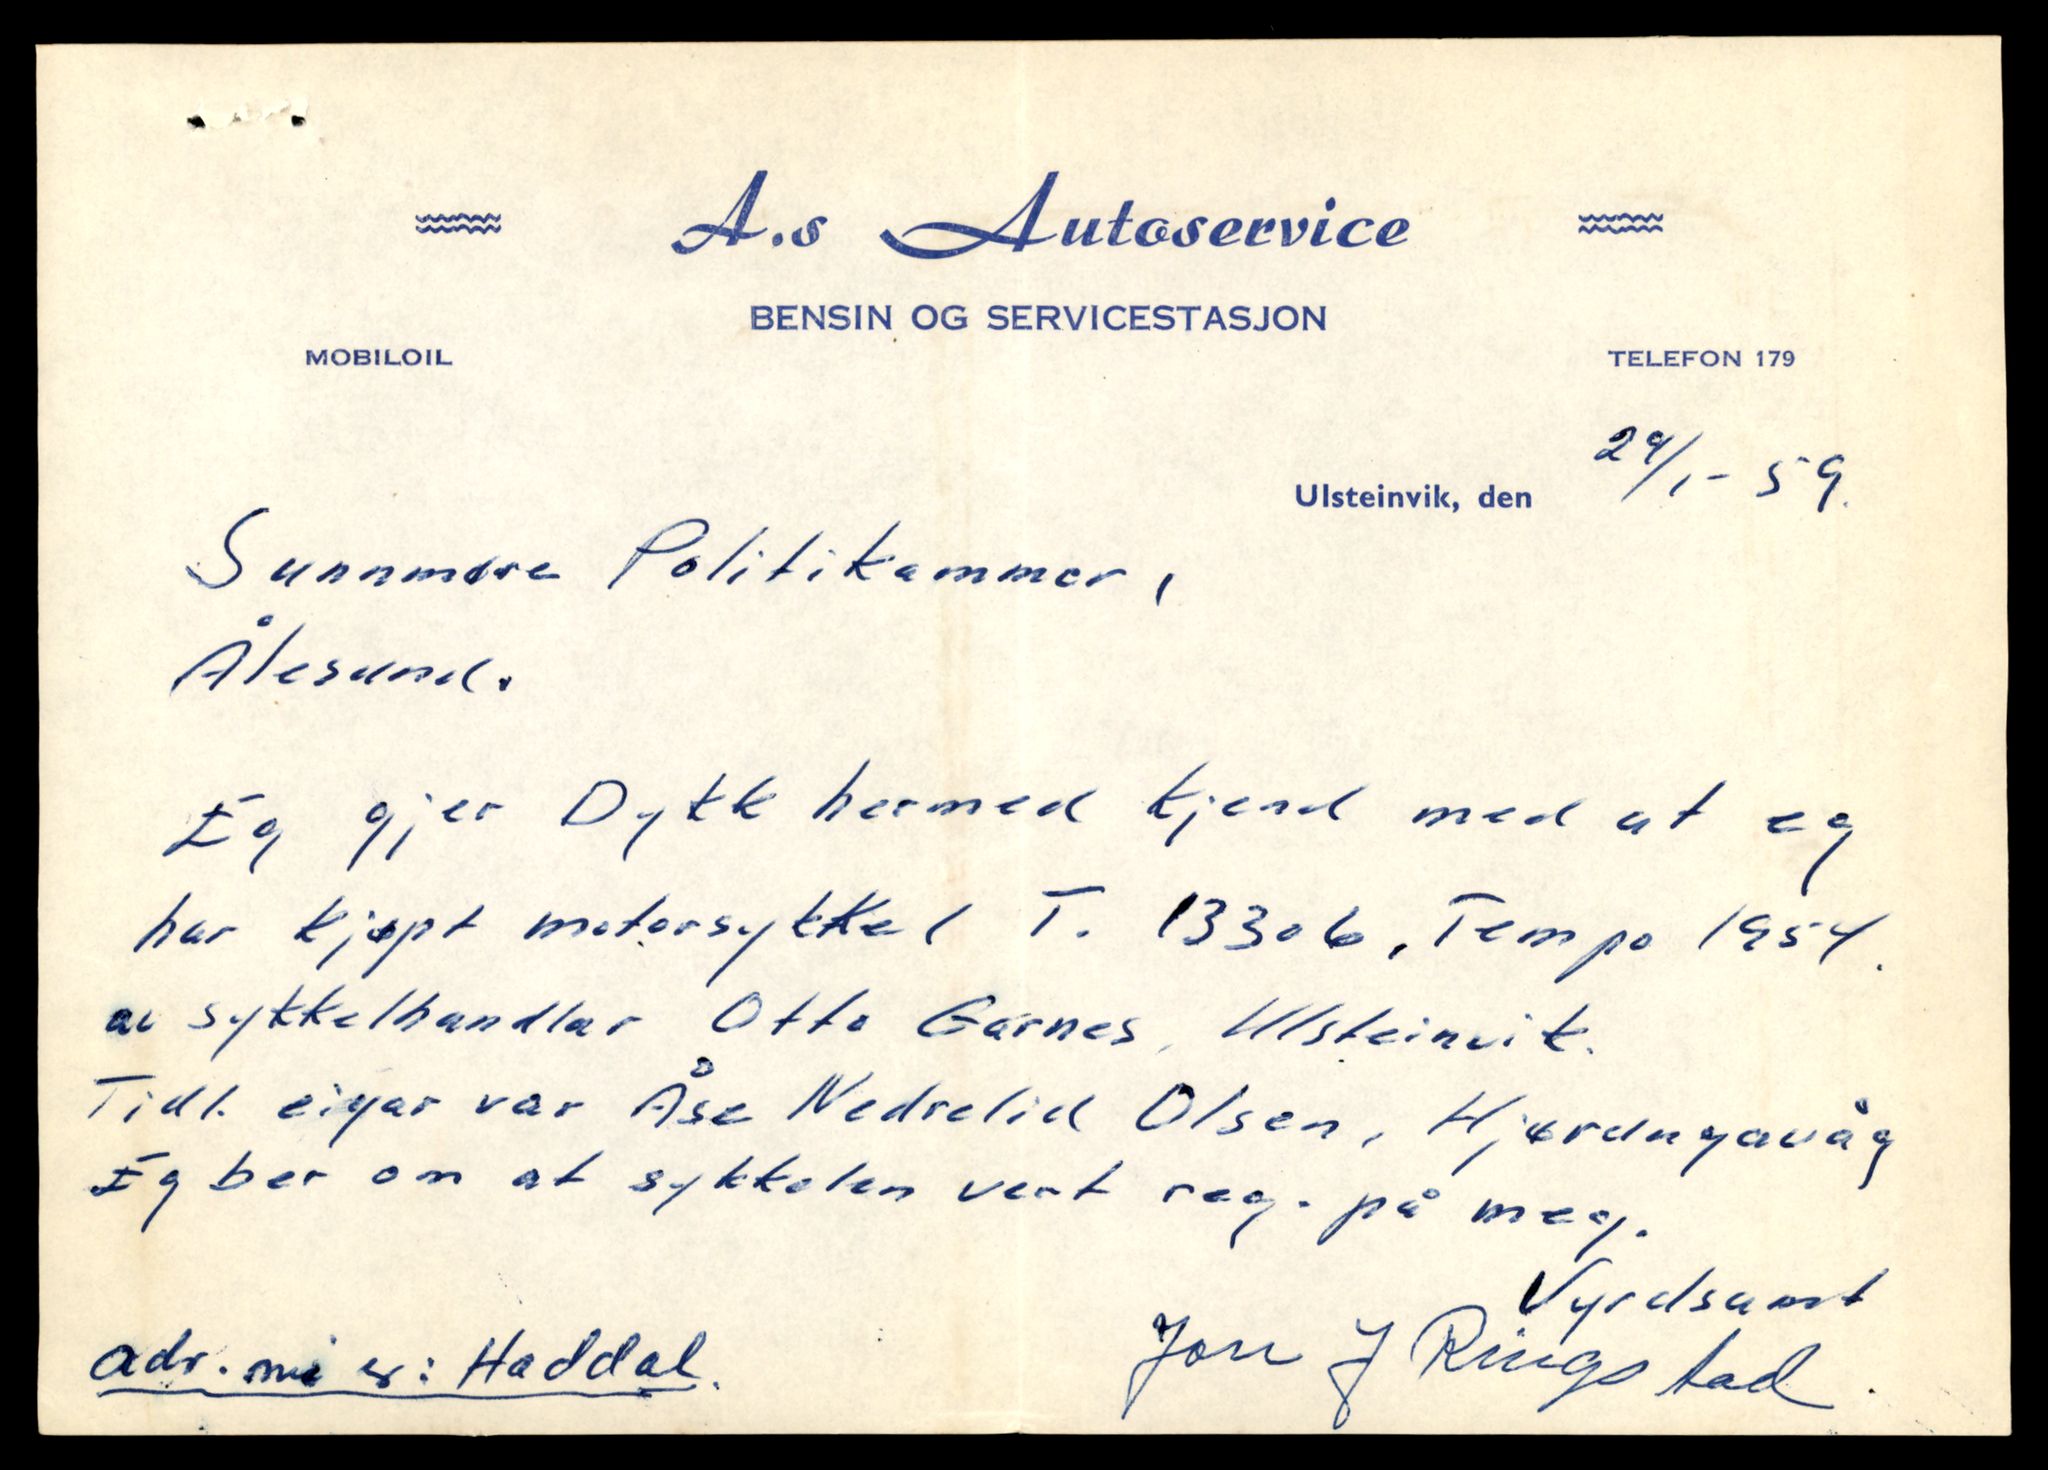 A.s Autoservice
BENSIN OG SERVICESTASJON
MOBILOIL
TELEFON 179
Ulsteinvik, den 29/1-59.
Sunnmøre Politikammer,
Ålesund.
Eg gjer Dykk hermed kjend med at eg
har kjøpt motorsykkel T. 13306, Tempo 1954.
av sykkelhandlar Otto Garnes, Ulsteinvik.
Tidl. eigar var Åse Nedrelid Olsen, Hjørungavåg
Eg ber om at sykkelen vert reg. på meg.
Vyrdsamt
Jon J Ringstad.
adr. mi er: Haddal.